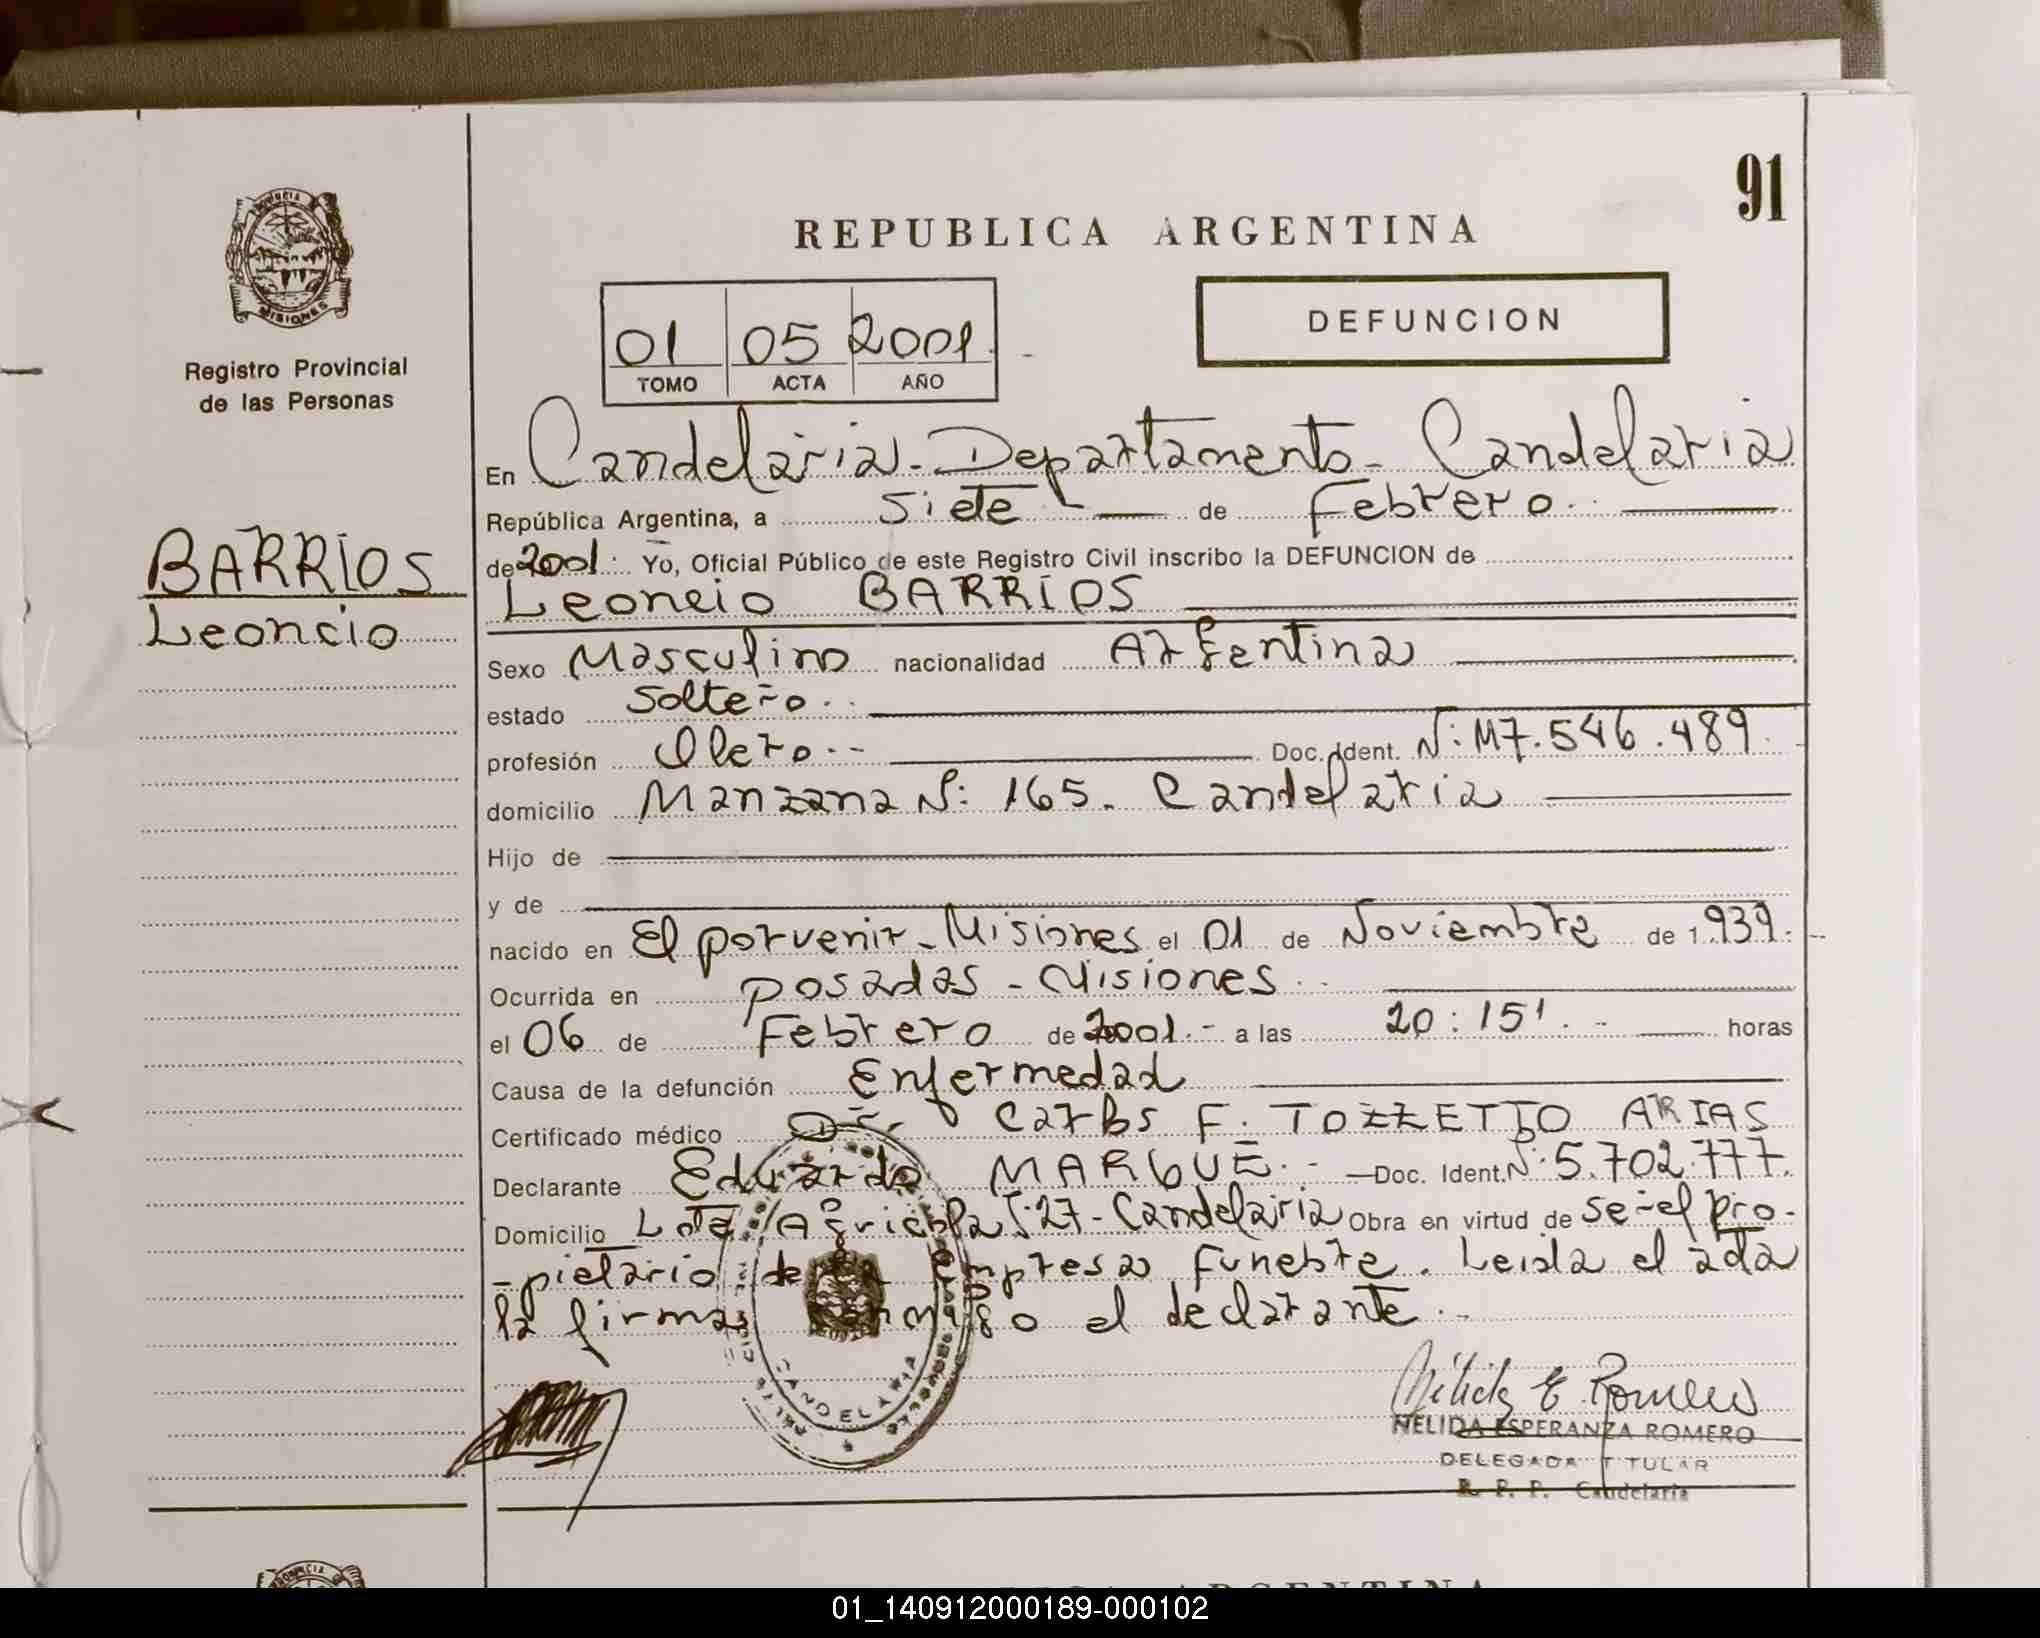 91
REPUBLICA ARGENTINA
PROVINCIA
MISIONES
Registro Provincial
de las Personas
01 05 2001
TOMO ACTA AÑO
DEFUNCION
BARRIOS
Leoncio
En Candelaria - Departamento - Candelaria
República Argentina, a siete de Febrero
de 2001 Yo, Oficial Público de este Registro Civil inscribo la DEFUNCION de
Leoncio BARRIOS
Sexo Masculino nacionalidad Argentina
estado Soltero
profesión Olero Doc. Ident. Nº: M7.546.489
domicilio Manzana Nº: 165. Candelaria
Hijo de
y de
nacido en El porvenir - Misiones el 01 de Noviembre de 1.939
Ocurrida en posadas - Misiones
el 06 de Febrero de 2001.- a las 20:15'. horas
Causa de la defunción Enfermedad
Certificado médico Dr. Carlos F. TOZZETTO ARIAS
Declarante Eduardo MARGUE.- Doc. Ident. Nº: 5.702.777.
Domicilio Lote Agricola Nº: 27 - Candelaria Obra en virtud de ser el pro-
-pietario de la Empresa Funebre. Leida el acta
la firma conmigo el declarante.-
CANDELARIA
Nélida E. Romero
NELIDA ESPERANZA ROMERO
DELEGADA TITULAR
R. P. P. Candelaria
ARGENTINA
01_140912000189-000102